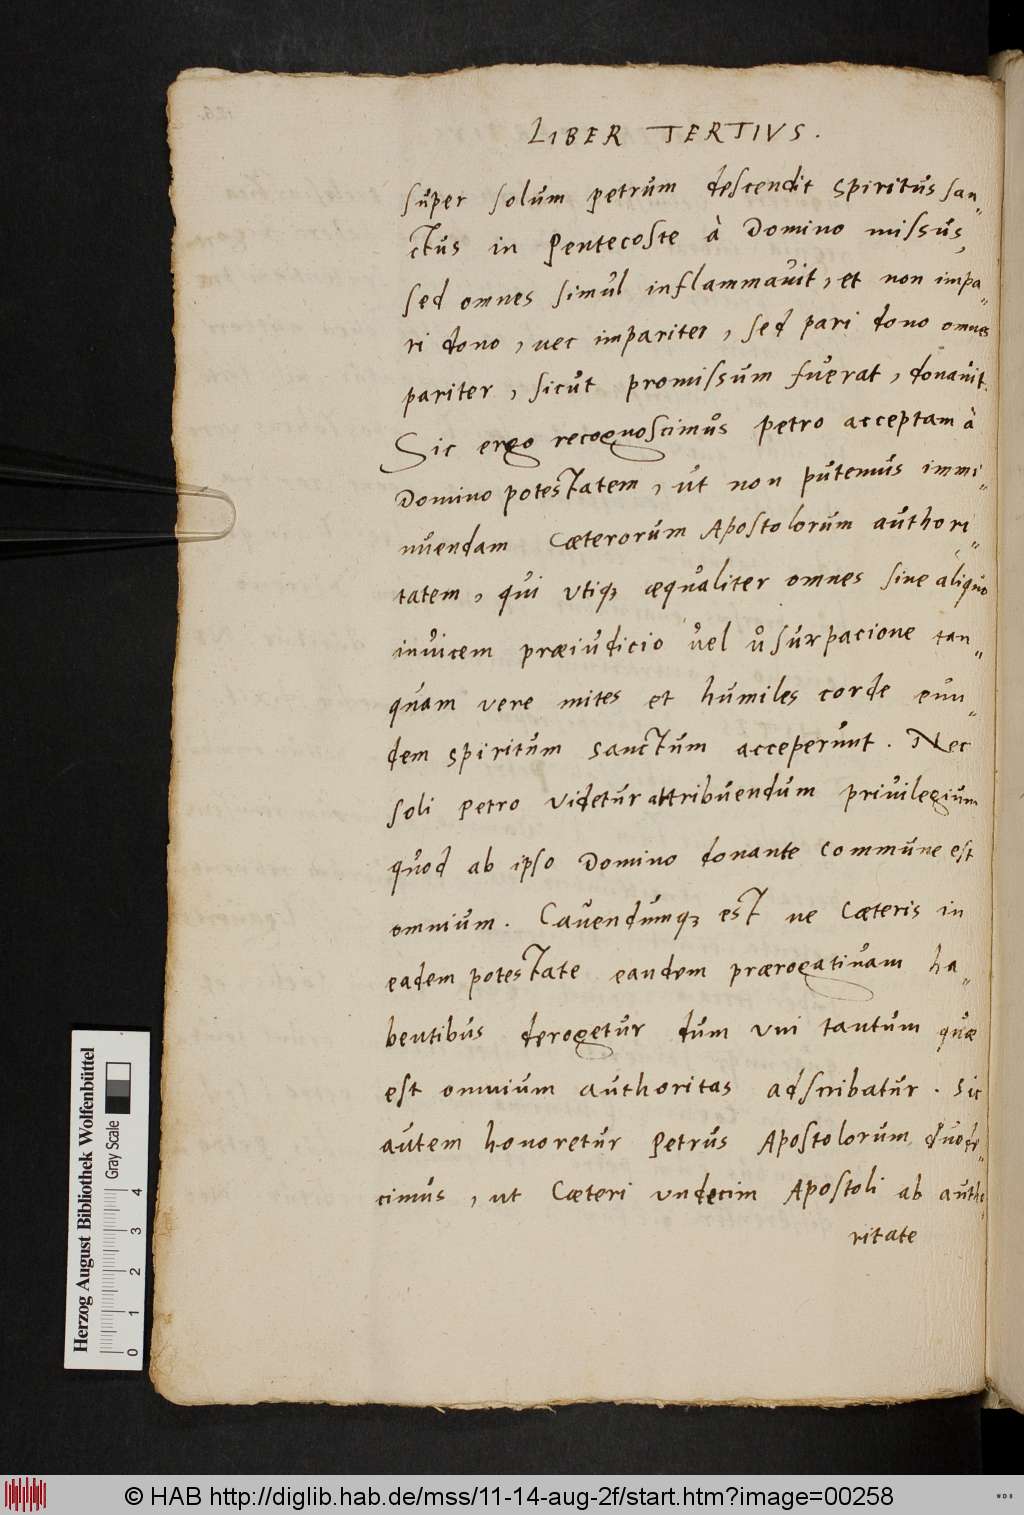 LIBER TERTIVS.
super solum petrum descendit spiritus san„
ctus in Pentecoste à Domino missus,
sed omnes simul inflammauit, et non impa„
ri dono, nec impariter, sed pari dono omnes
pariter, sicut promissum fuerat, donauit.
Sic ergo recognoscimus petro acceptam à
Domino potestatem, ut non putemus immi„
nuendam Cæterorum Apostolorum authori„
tatem, qui utiq3 æqualiter omnes sine aliquo
inuicem præiudicio vel usurpacione tan„
quam vere mites et humiles corde eun„
dem spiritum sanctum acceperunt. Nec
soli Petro videtur attribuendum priuilegium
quod ab ipso Domino donante commune est
omnium. Cauendumq3 est ne Cæteris in
eadem potestate eandem prærogatiuam ha„
bentibus derogetur dum uni tantum quæ
est omnium authoritas adscribatur. Sic
autem honoretur Petrus Apostolorum duode„
cimus, ut Cæteri undecim Apostoli ab autho„
ritate
Herzog August Bibliothek Wolfenbüttel
Gray Scale
0 1 2 3 4
© HAB http://diglib.hab.de/mss/11-14-aug-2f/start.htm?image=00258